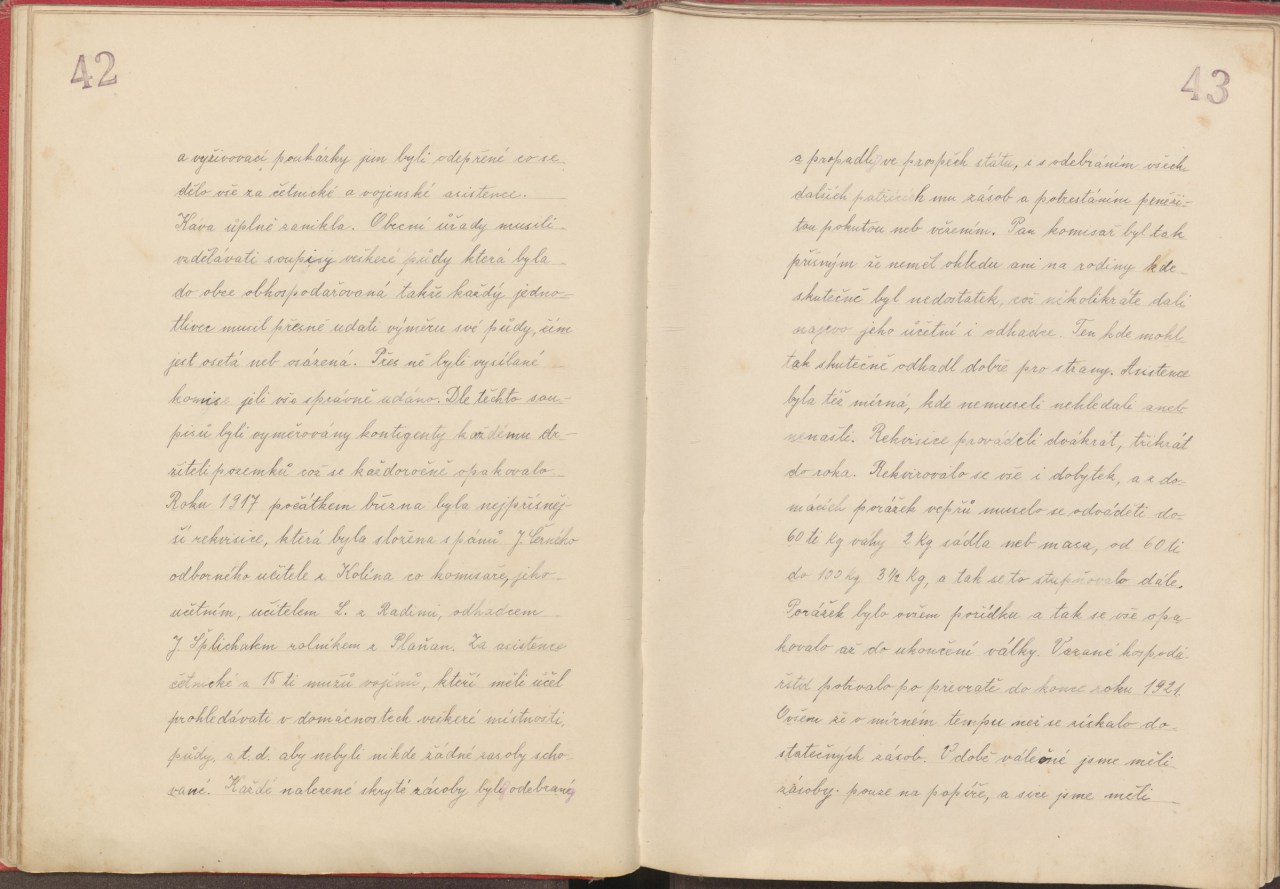 42
a vyživovací poukázky jim byli odepřené co se
dělo vše za četnické a vojenské asistence.
Káva úplně zanikla. Obecní úřady museli
vzdělávati soupisy veškeré půdy která byla
do obce obhospodařovaná takže každý jedno-
tlivec musil přesně udati výměru své půdy, čím
jest osetá neb osázená. Přes ně byli vysílané
komise jeli vše správně udáno. Dle těchto sou-
pisů byli vyměrovány kontigenty každému dr-
žiteli pozemků což se každoročně opakovalo
Roku 1917 počátkem března byla nejpřísněj-
ší rekvisice, která byla složena s pánů J. Černého
odborného učitele z Kolína co komisaře, jeho
účetním, učitelem L. z Radimi, odhadcem
J. Splíchalem rolníkem z Plaňan. Za asistence
četnické a 15 ti mužů vojínů, kteří měli účel
prohledávati v domácnostech veškeré místnosti,
půdy, a.t.d. aby nebyli nikde žádné zásoby scho-
vané. Každé nalezené skryté zásoby byli odebrané
43
a propadly ve prospěch státu, i s odebráním všech
dalších patřících mu zásob a potrestáním peněži-
tou pokutou neb vězením. Pan komisař byl tak
přísným že neměl ohledu ani na rodiny kde
skutečně byl nedostatek, což několikráte dali
najevo jeho účetní i odhadce. Ten kde mohl
tak skutečně odhadl dobře pro strany. Asistence
byla též mírná, kde nemuseli nehledali aneb
nenašli. Rekvisice prováděli dvákrát, třikrát
do roka. Rekvirovalo se vše i dobytek, a z do-
mácích porážek vepřů muselo se odváděti do
60 ti kg váhy 2 kg sádla neb masa, od 60 ti
do 100 kg 3½ Kg, a tak se to stupňovalo dále.
Porážek bylo ovšem pořídku a tak se vše opa-
kovalo až do ukončení války. Vázané hospodá-
řství potrvalo po převratě do konce roku 1921.
Ovšem že v mírném tempu než se získalo do-
statečných zásob. V době válečné jsme měli
zásoby pouze na papíře, a sice jsme měli